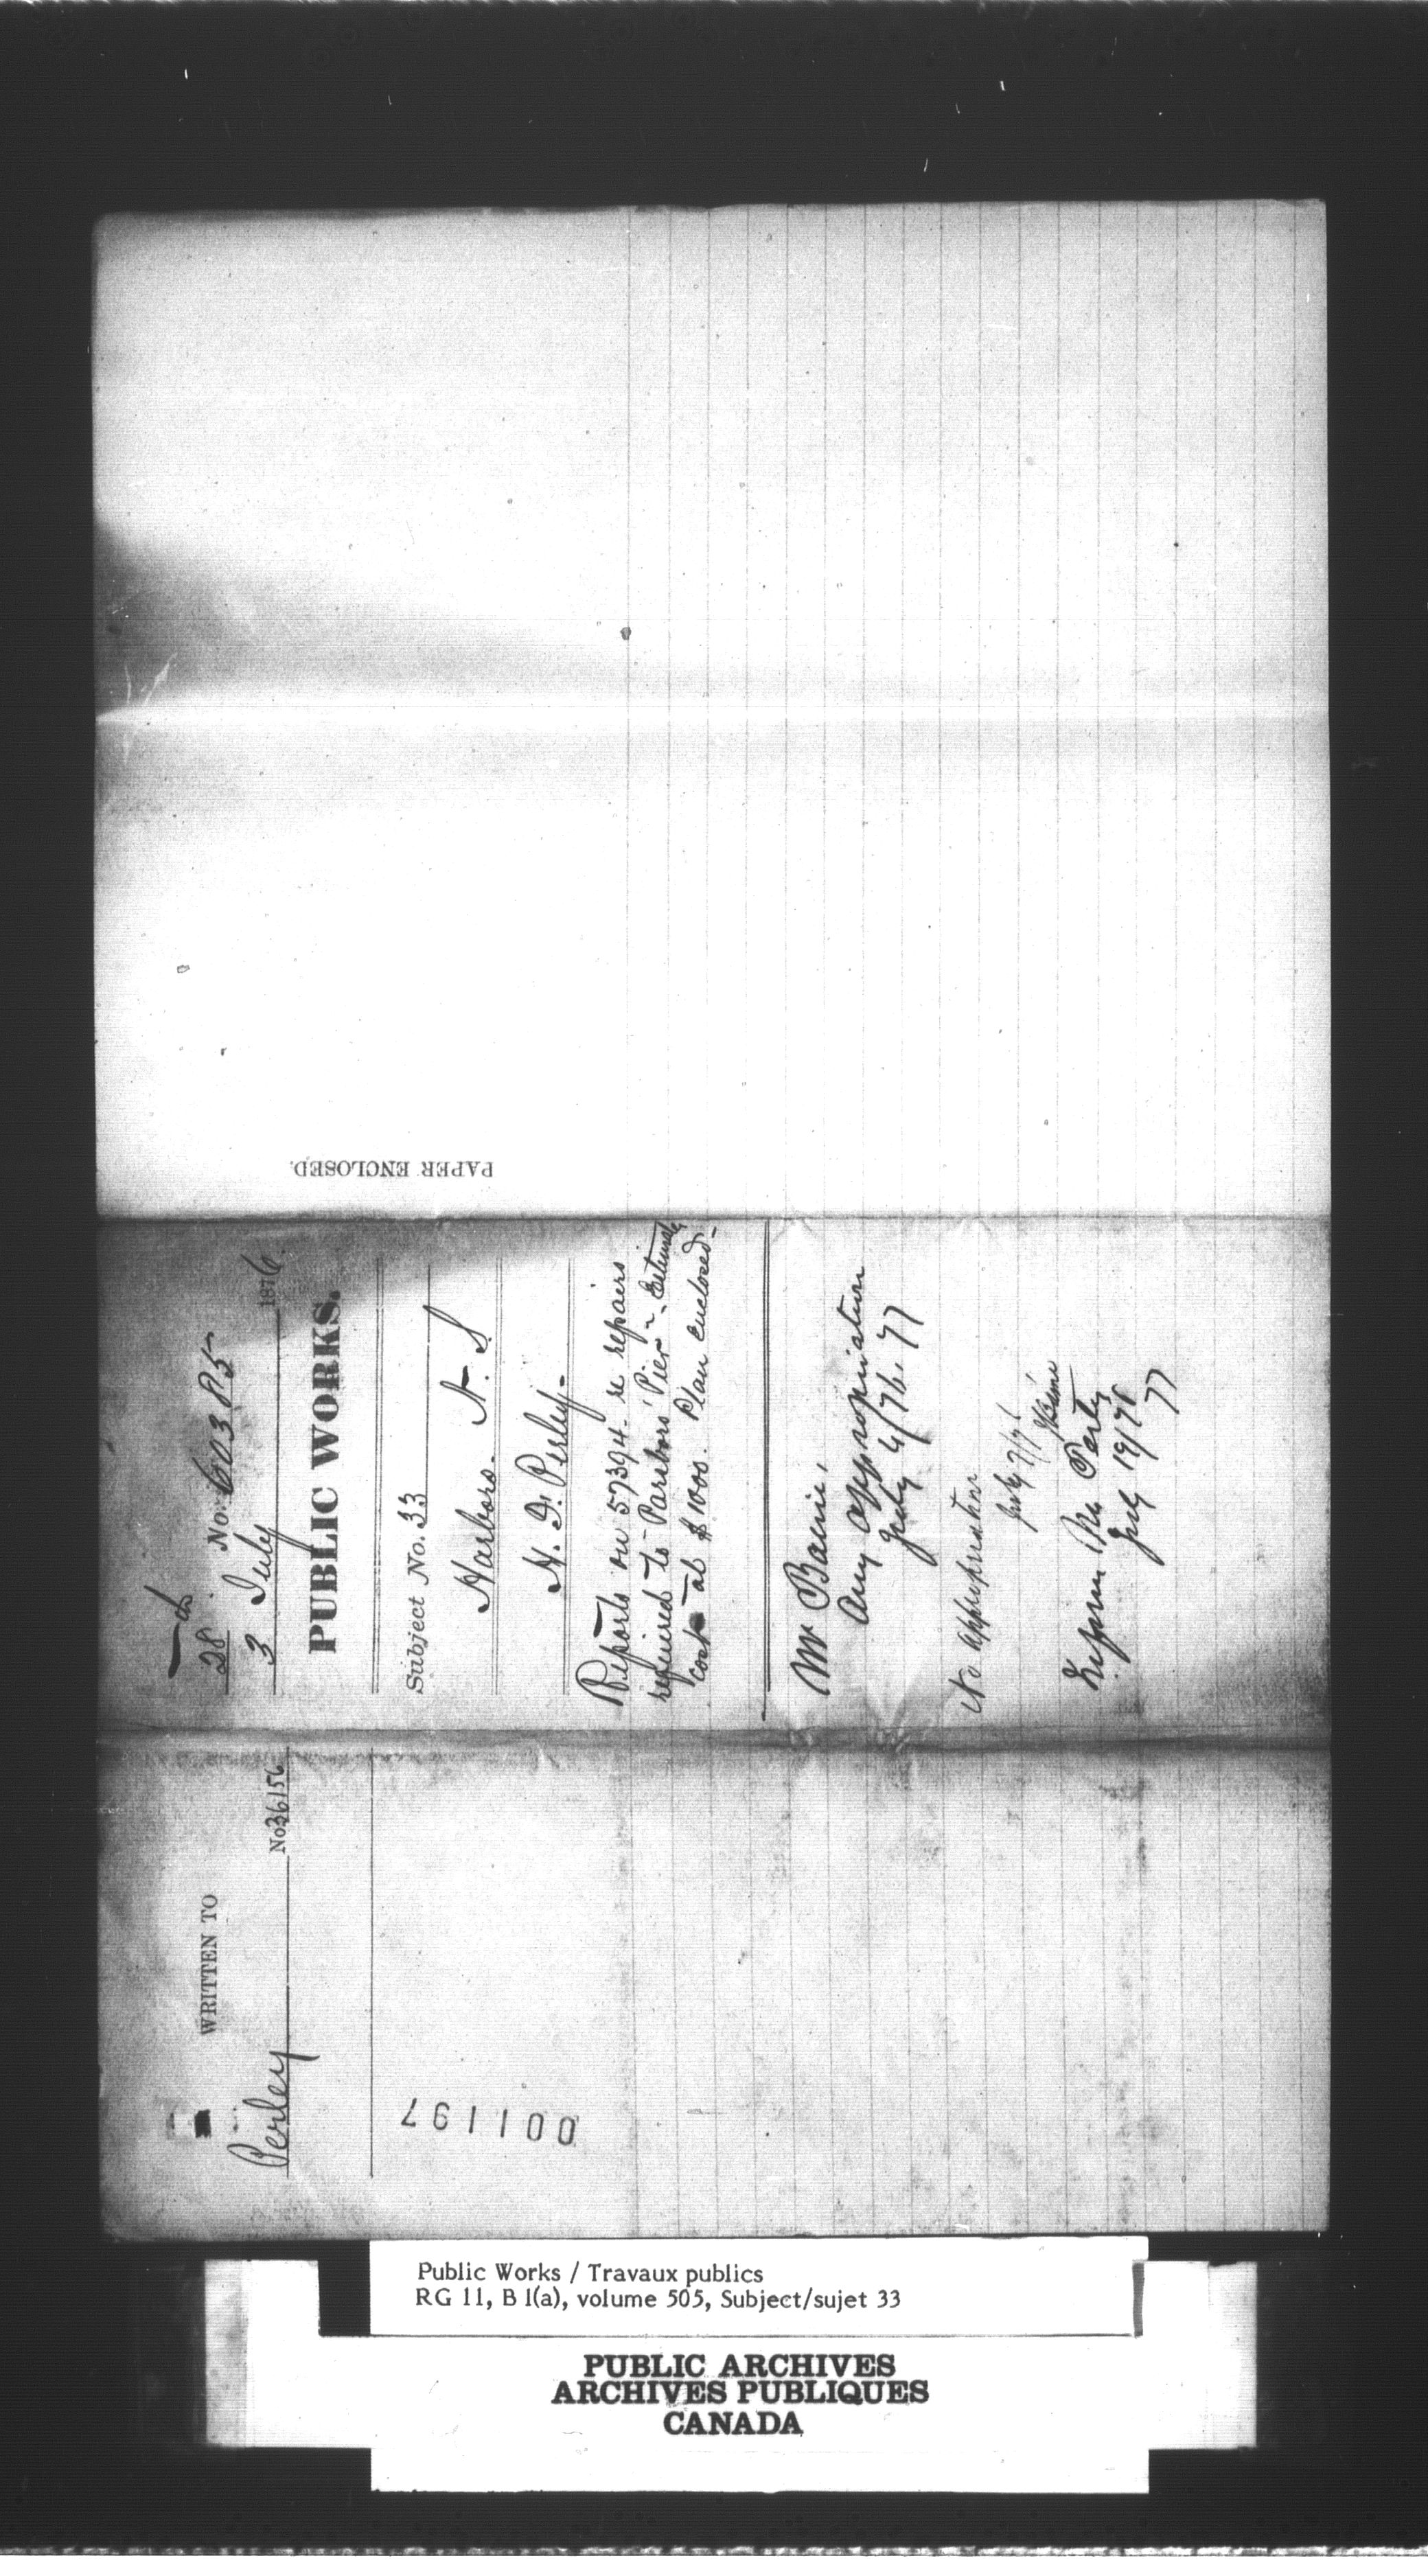 PAPER ENCLOSED.
28. No. 60385
3 July 1876
PUBLIC WORKS.
Subject No. 33
Harbors. N. S
H. F. Perley-
Reports on 57394 - re repairs
required to Parrsboro' Pier - Estimate
cost at $1000. Plan enclosed-
Mr Baine,
Any appropriation
July 4/76. 77
No appropriation
July 7/76
Baine
Inform Mr Perley
July 19/76
77
WRITTEN TO
Perley No 36156
001197
Public Works / Travaux publics
RG 11, B 1(a), volume 505, Subject/sujet 33
PUBLIC ARCHIVES
ARCHIVES PUBLIQUES
CANADA